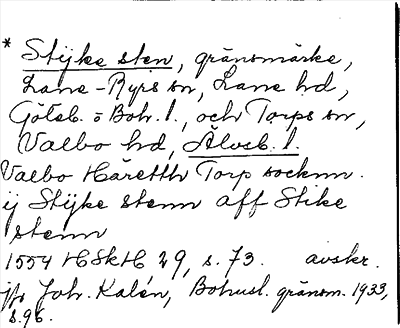 * Stÿke sten, gränsmärke,
Lane-Ryrs sn, Lane hd,
Göteb. o Boh. l., och Torps sn,
Valbo hd, Älvsb. l.
Valbo Häretth Torp socknn.
ij Stÿke stenn aff Stike
stenn
1554 HSkH 29, s. 73. avskr.
jfr Joh. Kalén, Bohusl. gränsm. 1933,
s. 96.